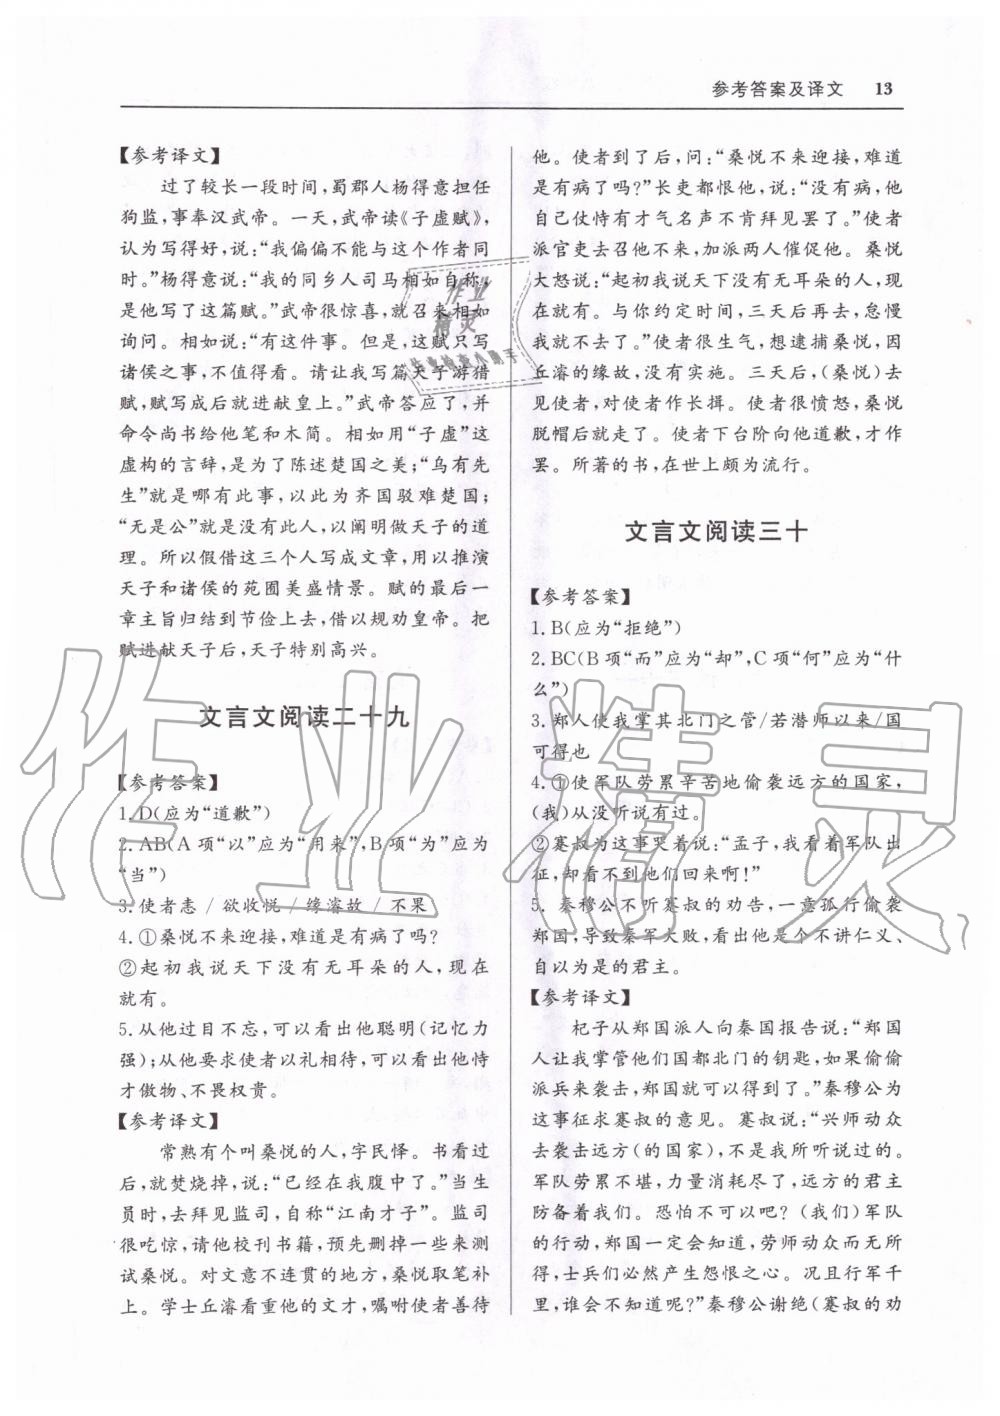 参考答案及译文 13
【参考译文】
过了较长一段时间,蜀郡人杨得意担任
狗监,事奉汉武帝。一天,武帝读《子虚赋》,
认为写得好,说:“我偏偏不能与这个作者同
时。”杨得意说:“我的同乡人司马相如自称,
是他写了这篇赋。”武帝很惊喜,就召来相如
询问。相如说:“有这件事。但是,此赋只写
诸侯之事,不值得看。请让我写篇天子游猎
赋,赋写成后就进献皇上。”武帝答应了,并
命令尚书给他笔和木简。相如用“子虚”这
虚构的言辞,是为了陈述楚国之美;“乌有先
生”就是哪有此事,以此为齐国驳难楚国;
“无是公”就是没有此人,以阐明做天子的道
理。所以假借这三个人写成文章,用以推演
天子和诸侯的苑囿美盛情景。赋的最后一
章主旨归结到节俭上去,借以规劝皇帝。把
赋进献天子后,天子特别高兴。
文言文阅读二十九
【参考答案】
1. D(应为“道歉”)
2. AB(A 项“以”应为“用来”,B项“为”应为
“当”)
3. 使者恚 / 欲收悦 / 缘濬故 / 不果
4. ①桑悦不来迎接,难道是有病了吗?
②起初我说天下没有无耳朵的人,现在
就有。
5. 从他过目不忘,可以看出他聪明(记忆力
强);从他要求使者以礼相待,可以看出他恃
才傲物、不畏权贵。
【参考译文】
常熟有个叫桑悦的人,字民怿。书看过
后,就焚烧掉,说:“已经在我腹中了。”当生
员时,去拜见监司,自称“江南才子”。监司
很吃惊,请他校刊书籍,预先删掉一些来测
试桑悦。对文意不连贯的地方,桑悦取笔补
上。学士丘濬看重他的文才,嘱咐使者善待
他。使者到了后,问:“桑悦不来迎接,难道
是有病了吗?”长吏都恨他,说:“没有病,他
自己仗恃有才气名声不肯拜见罢了。”使者
派官吏去召他不来,加派两人催促他。桑悦
大怒说:“起初我说天下没有无耳朵的人,现
在就有。与你约定时间,三天后再去,怠慢
我就不去了。”使者很生气,想逮捕桑悦,因
丘濬的缘故,没有实施。三天后,(桑悦)去
见使者,对使者作长揖。使者很愤怒,桑悦
脱帽后就走了。使者下台阶向他道歉,才作
罢。所著的书,在世上颇为流行。
文言文阅读三十
【参考答案】
1. B(应为“拒绝”)
2. BC(B 项“而”应为“却”,C 项“何”应为“什
么”)
3. 郑人使我掌其北门之管/若潜师以来/国
可得也
4. ①使军队劳累辛苦地偷袭远方的国家,
(我)从没听说有过。
②蹇叔为这事哭着说:“孟子,我看着军队出
征,却看不到他们回来啊!”
5. 秦穆公不听蹇叔的劝告,一意孤行偷袭
郑国,导致秦军大败,看出他是个不讲仁义、
自以为是的君主。
【参考译文】
杞子从郑国派人向秦国报告说:“郑国
人让我掌管他们国都北门的钥匙,如果偷偷
派兵来袭击,郑国就可以得到了。”秦穆公为
这事征求蹇叔的意见。蹇叔说:“兴师动众
去袭击远方(的国家),不是我所听说过的。
军队劳累不堪,力量消耗尽了,远方的君主
防备着我们。恐怕不可以吧?(我们)军队
的行动,郑国一定会知道,劳师动众而无所
得,士兵们必然产生怨恨之心。况且行军千
里,谁会不知道呢?”秦穆公谢绝(蹇叔的劝
作业精灵
作业
精灵
作业检查小助手